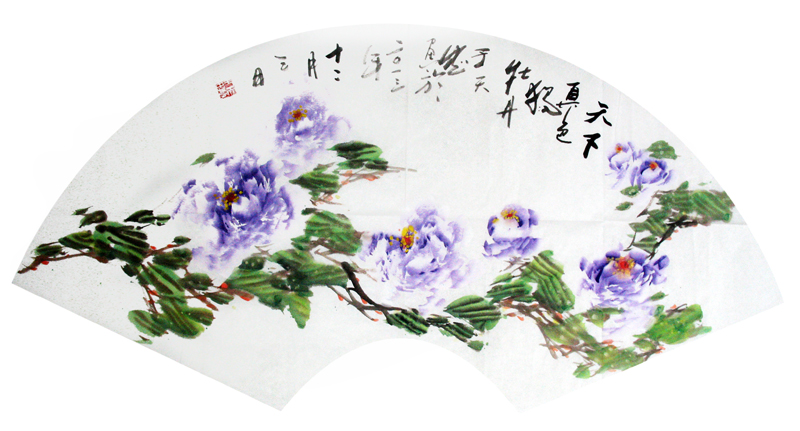 天下
真色
獨
牡丹
于天
画於
二〇一三
年
十二
月
三
日